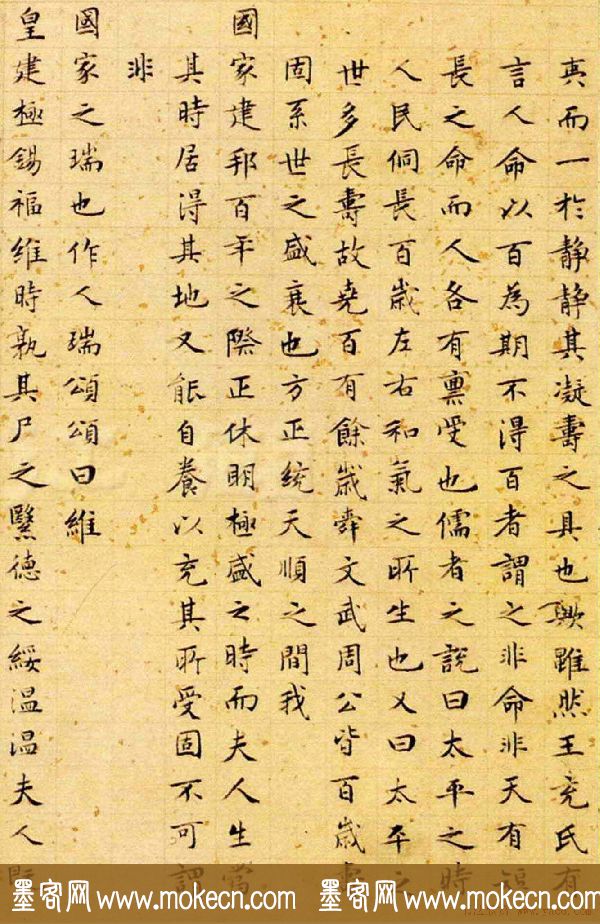 真而一於静静其凝壽之具也歟雖然王充氏有
言人命以百為期不得百者謂之非命非天有
長之命而人各有禀受也儒者之說曰太平之時
人民侗長百歲左右和氣之所生也又曰太平之
世多長壽故堯百有餘歲舜文武周公皆百歲
固系世之盛衰也方正統天順之間我
國家建邦百年之際正休明極盛之時而夫人生當
其時居得其地又能自養以充其所受固不可謂
非
國家之瑞也作人瑞頌頌曰維
皇建極錫福維時孰其尸之緊德之綏温温夫人
墨客网 www.mokecn.com 墨客网 www.mokecn.com